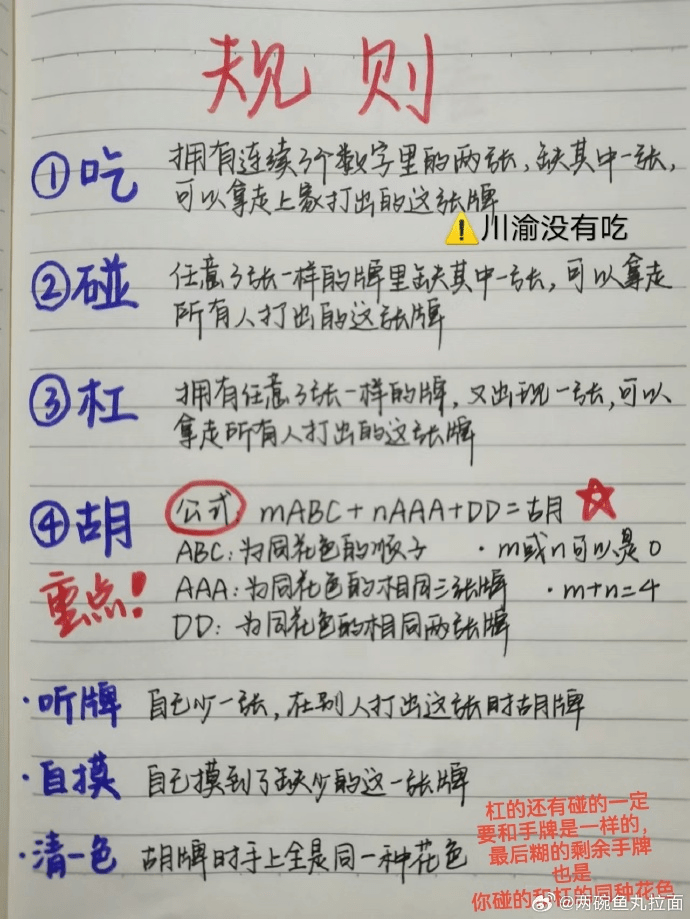 规则
①吃 拥有连续3个数字里的两张，缺其中一张，
可以拿走上家打出的这张牌
川渝没有吃
②碰 任意3张一样的牌里缺其中一张，可以拿走
所有人打出的这张牌
③杠 拥有任意3张一样的牌，又出现一张，可以
拿走所有人打出的这张牌
④胡 公式：mABC+nAAA+DD=胡
ABC：为同花色的顺子 ·m或n可以是0
重点！ AAA：为同花色的相同三张牌 ·m+n=4
DD：为同花色的相同两张牌
·听牌 自己少一张，在别人打出这张时胡牌
·自摸 自己摸到了缺少的这一张牌
·清一色 胡牌时手上全是同一种花色
杠的还有碰的一定
要和手牌是一样的，
最后糊的剩余手牌
也是
你碰的和杠的同种花色
@两碗鱼丸拉面